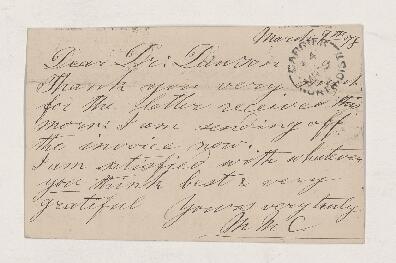 March 9th 98
Dear Dr: Dawson
Thank you very
for the letter received this
morn: I am sending off
the invoice now.
I am satisfied with whatever
you think best & very
grateful Yours very truly
M M C